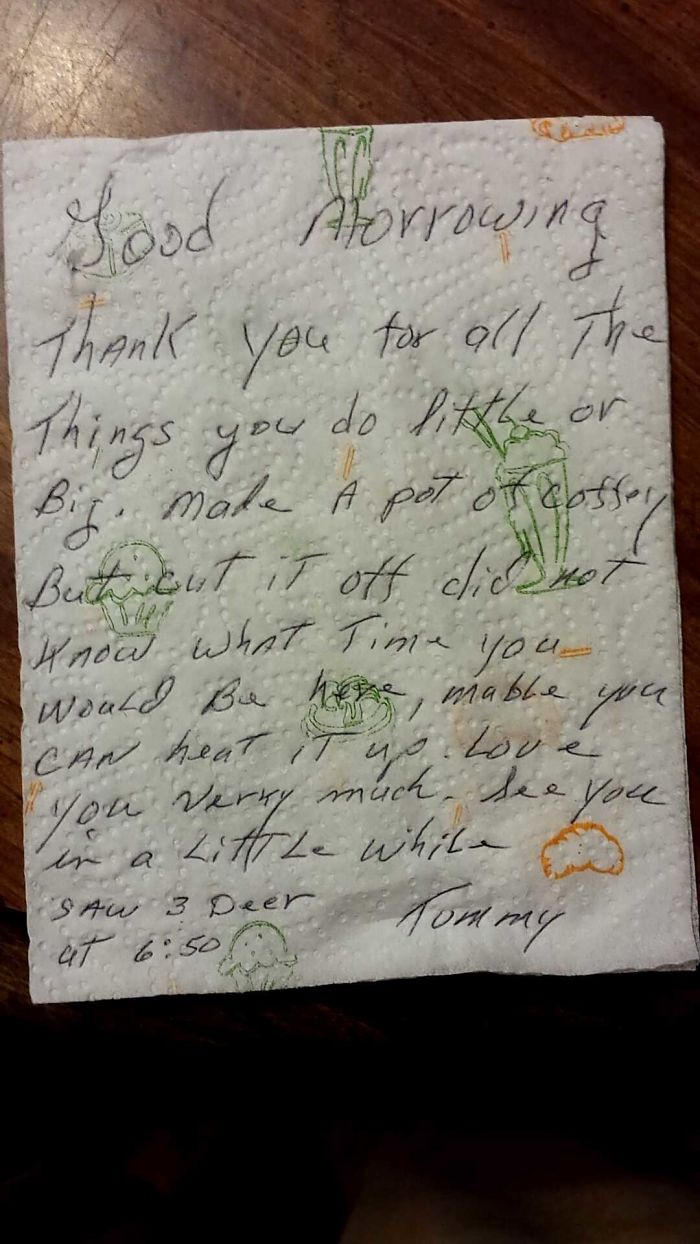 Good Morrowing
Thank you for all The
Things you do little or
Big. Made A pot of coffey
But cut iT off did not
Know whaT Time you
would Be here, mabbe you
CAN heat iT up. Love
you verky much. See you
in a LiTTLe while
SAW 3 Deer
at 6:50
Tommy